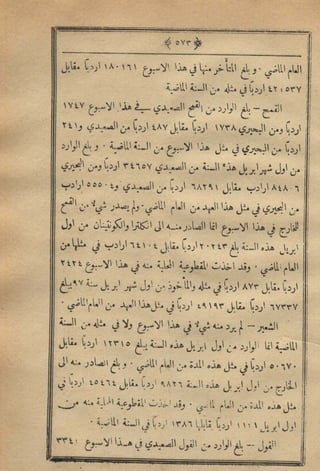 ﴿ ٥٧٣ ﴾
العام الماضي . وبلغ المتأخر منها في هذا الاسبوع ١٨٠١٦١ اردبًا مقابل
٤٢١٥٣٧ اردبًا في مثله من السنة الماضية
القمح — بلغ الوارد من القمح الصعيدي في هذا الاسبوع ١٧٤٧
اردبًا ومن البحيري ١٧٣٨ اردبًا مقابل ٤٨٧ اردبًا من الصعيدي و٢٤١
اردبًا من البحيري في مثل هذا الاسبوع من السنة الماضية . وبلغ الوارد
من اول شهر ابريل هذه السنة من الصعيدي ٣٤٦٥٧ اردبًا ومن البحيري
٨٤٨٠٦ ارادب مقابل ٦٨٢٩١ اردبًا من الصعيدي و٥٥٥٠٤ ارادب
من البحيري في مثل هذا العهد من العام الماضي . ولم يصدر شيء من القمح
للخارج في هذا الاسبوع انما الصادر منه الى انكلترا والكونتينان من اول
ابريل هذه السنة بلغ ٢٠٢٤٣ اردبًا مقابل ٦٤١٠٤ ارادب في مثلها من
العام الماضي . وقد اخذت المقطوعية المحلية منه في هذا الاسبوع ٢٤٢٤
اردبًا مقابل ٨٧٣ اردبًا في مثله والمأخوذ من اول شهر ابريل سنة ٩٧ يبلغ
٦٧٣٣٧ اردبًا مقابل ٤٩١٩٣ اردبًا في مثل هذا العهد من العام الماضي .
الشعير — لم يرد منه شيء في هذا الاسبوع ولا في مثله من السنة
الماضية انما الوارد من اول ابريل هذه السنة يبلغ ١٢٣١٥ اردبًا مقابل
٥٠٦٧٠ اردبًا في مثل هذه المدة من العام الماضي . وبلغ الصادر منه الى
الخارج من اول ابريل هذه السنة ٩٨٢٦ اردبًا مقابل ٤٥٤٦٤ اردبًا في
مثل هذه المدة من العام الماضي . وقد اخذت المقطوعية المحلية منه من
اول ابريل ١١١١ اردبًا تقابلها ١٣٨٦ اردبًا في السنة الماضية .
الفول — بلغ الوارد من الفول الصعيدي في هذا الاسبوع ٣٣٤٠